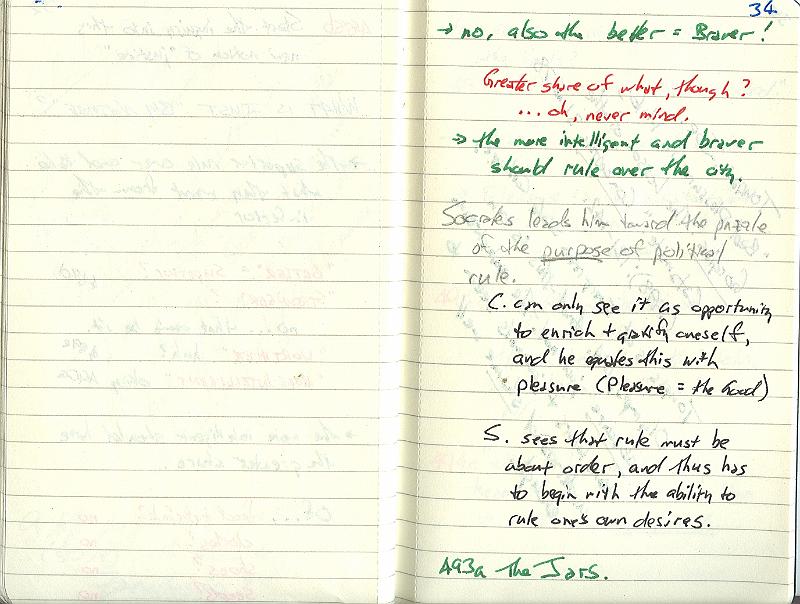 34
→ no, also the better = Braver!
Greater share of what, though?
... oh, never mind.
→ the more intelligent and braver
should rule over the city.
Socrates leads him toward the puzzle
of the purpose of political
rule.
C. can only see it as opportunity
to enrich + gratify oneself,
and he equates this with
pleasure (Pleasure = the Good)
S. sees that rule must be
about order, and thus has
to begin with the ability to
rule one's own desires.
493a The Jars.